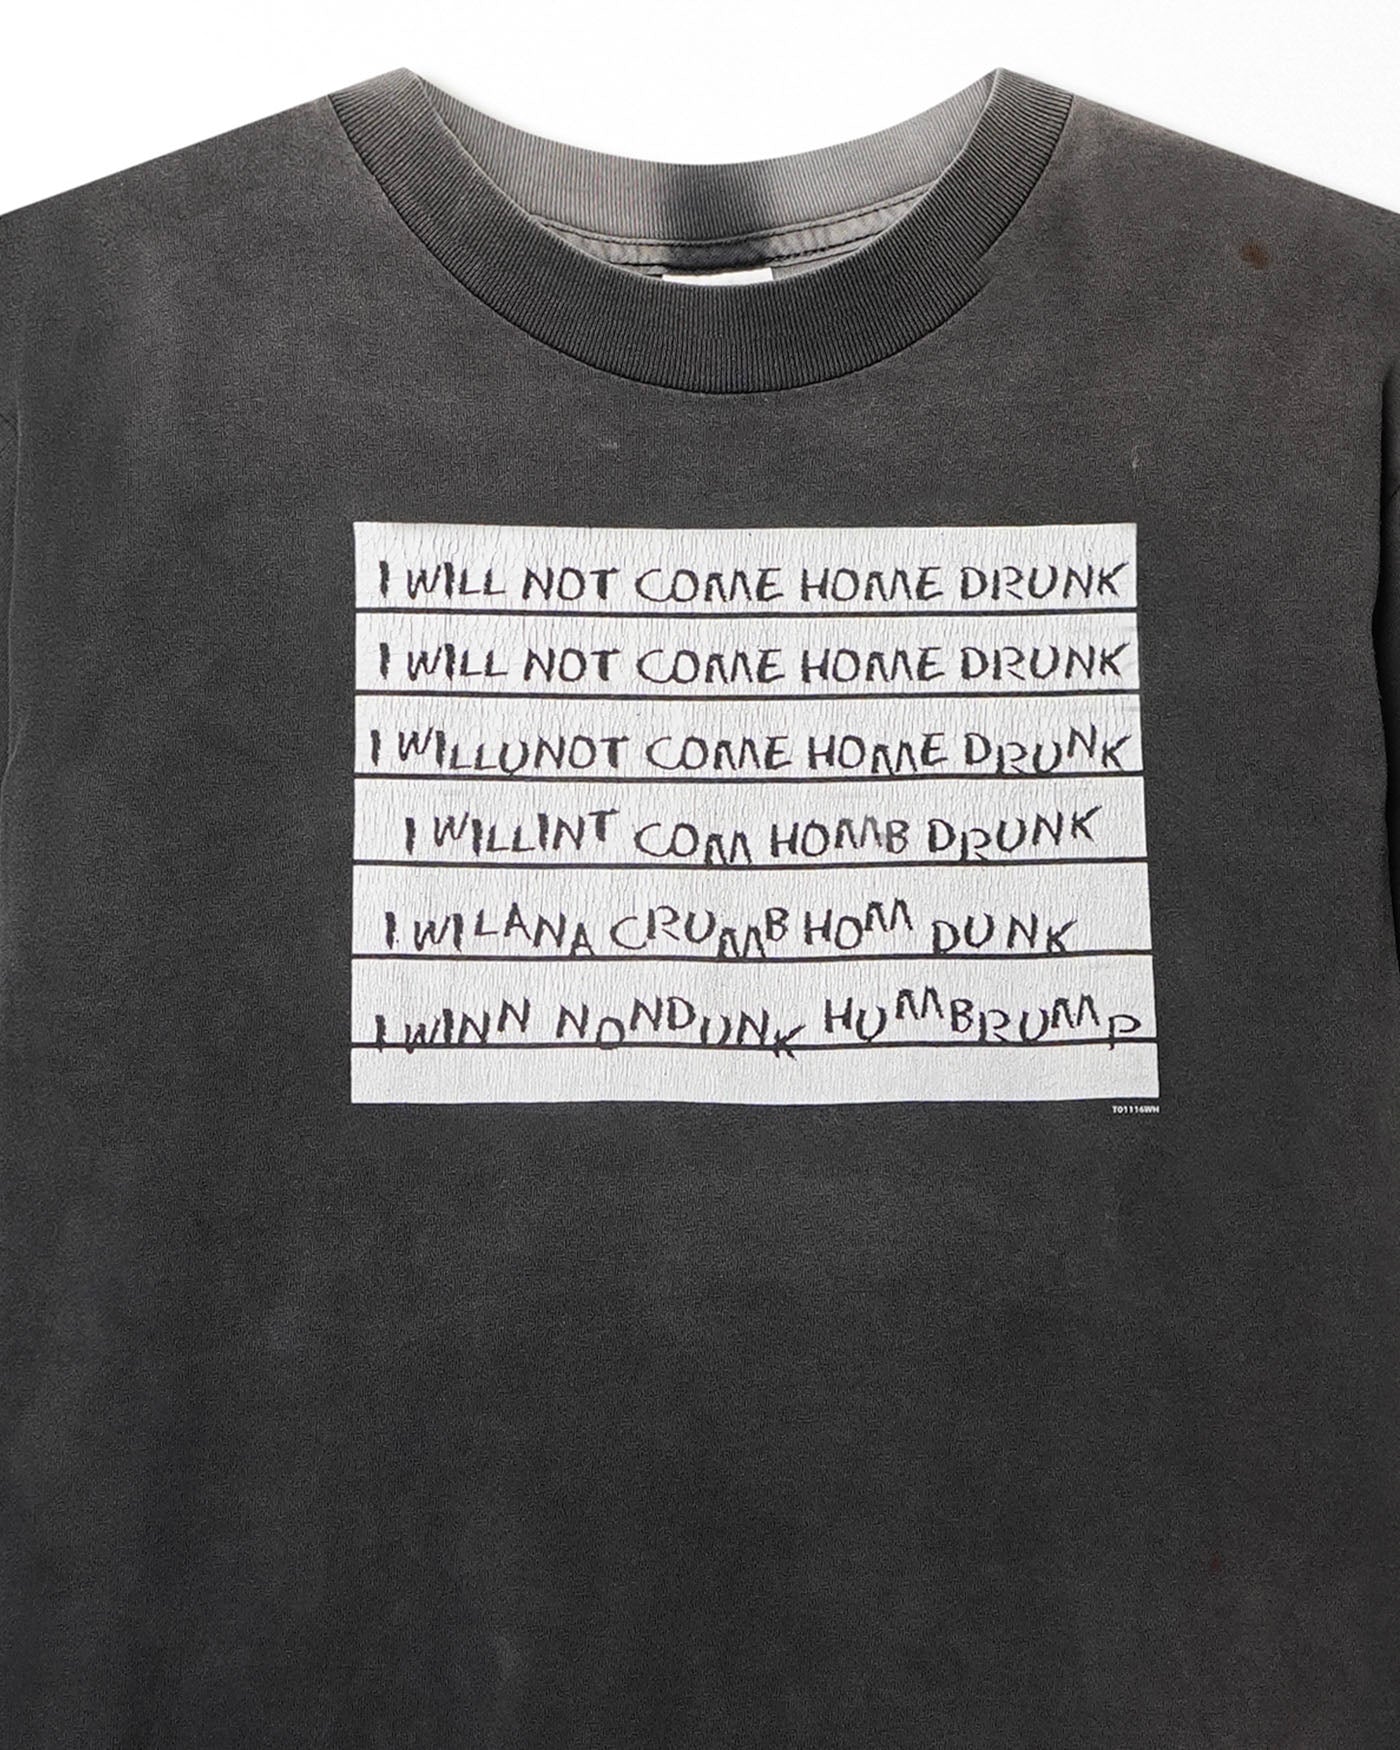 I WILL NOT COME HOME DRUNK
I WILL NOT COME HOME DRUNK
I WILLUNOT COME HOME DRUNK
I WILLINT COM HOMB DRUNK
I WILANA CRUMB HOM DUNK
I WINN NONDUNK HUMBRUMP
T01116WH